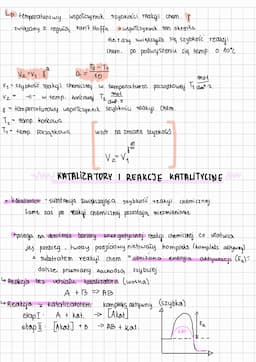 temperaturowy współczynnik szybkości reakcji chem. γ
związany z regułą Van't Hoffa współczynnik ten określa
ile razy zwiększa się szybkość reakcji
chem. po podwyższeniu się temp. o 10°C
V₂=V₁ γᵃ a = T₂-T₁ / 10
V₁ = szybkość reakcji chemicznej w temperaturze początkowej T₁ mol/dm³·s
V₂ = -"- w temp. końcowej T₂ mol/dm³·s
γ = temperaturowy współczynnik szybkości reakcji chem.
T₂ = temp. końcowa
T₁ = temp. początkowa
wzór na zmianę szybkości
V₂=V₁
KATALIZATORY I REAKCJE KATALITYCZNE
katalizator - substancja zwiększająca szybkość reakcji chemicznej
same zaś po reakcji chemicznej pozostają niezmienione
polega na obniżeniu bariery energetycznej reakcji chemicznej co ułatwia
jej przebieg. tworzy przejściowy nietrwały kompleks (kompleks aktywny)
z substratem reakcji chem → obniżona energia aktywacji (Eₐ);
dalsze przemiany zachodzą szybciej
Reakcja bez udziału katalizatora (wolna)
A + B → AB
Reakcja z katalizatorem: kompleks aktywny (szybka)
etap I: A + kat. → [Akat]
etap II: [Akat] + B → AB + kat.
Eₐ